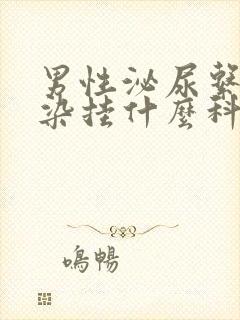 男性泌尿繫
染挂什麼科
鳴暢